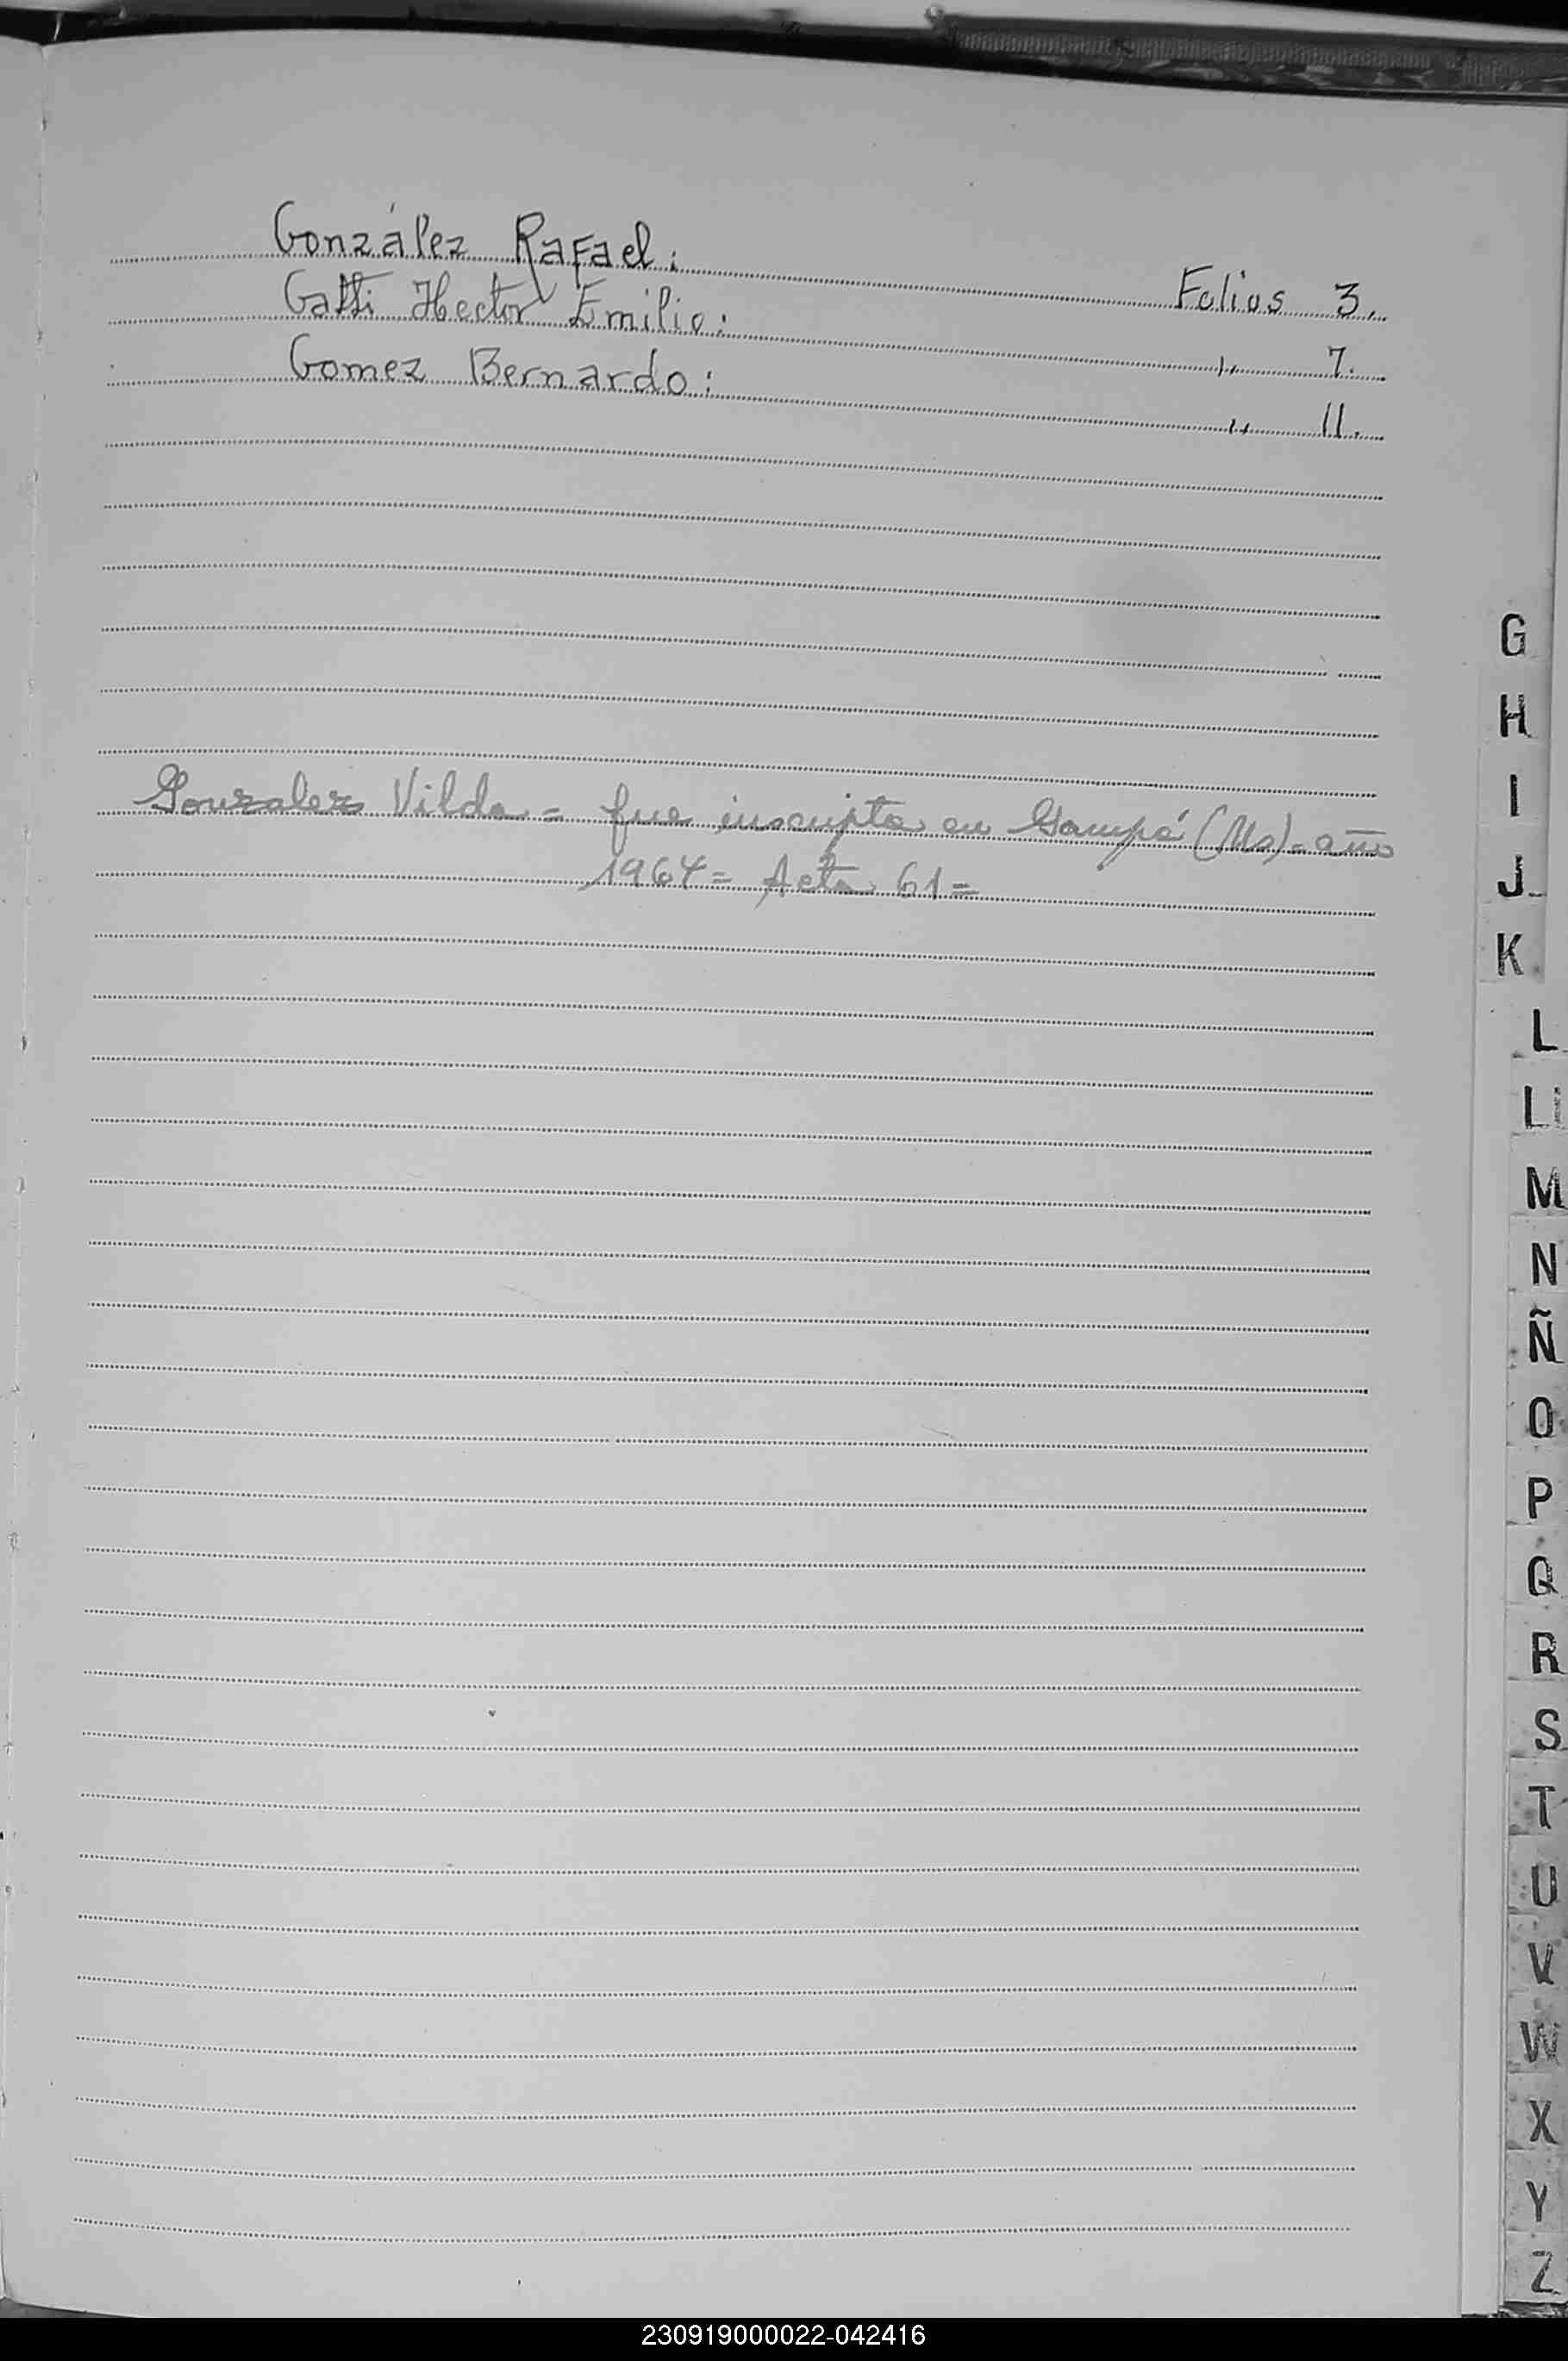 González Rafael: Folios 3.
Gatti Hector Emilio: ,, 7.
Gomez Bernardo: ,, 11.
Gonzalez Vilda = fue inscripta en Garupá (Ms)= año
1964= Acta 61=
G
H
I
J
K
L
Ll
M
N
Ñ
O
P
Q
R
S
T
U
V
W
X
Y
Z
230919000022-042416